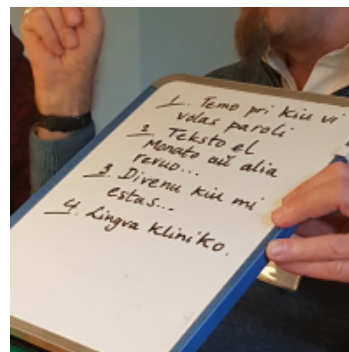 1. Temo pri kiu vi
volas paroli
2. Teksto el
Monato aŭ alia
revuo...
3. Divenu kiu mi
estas...
4. Lingva kliniko.